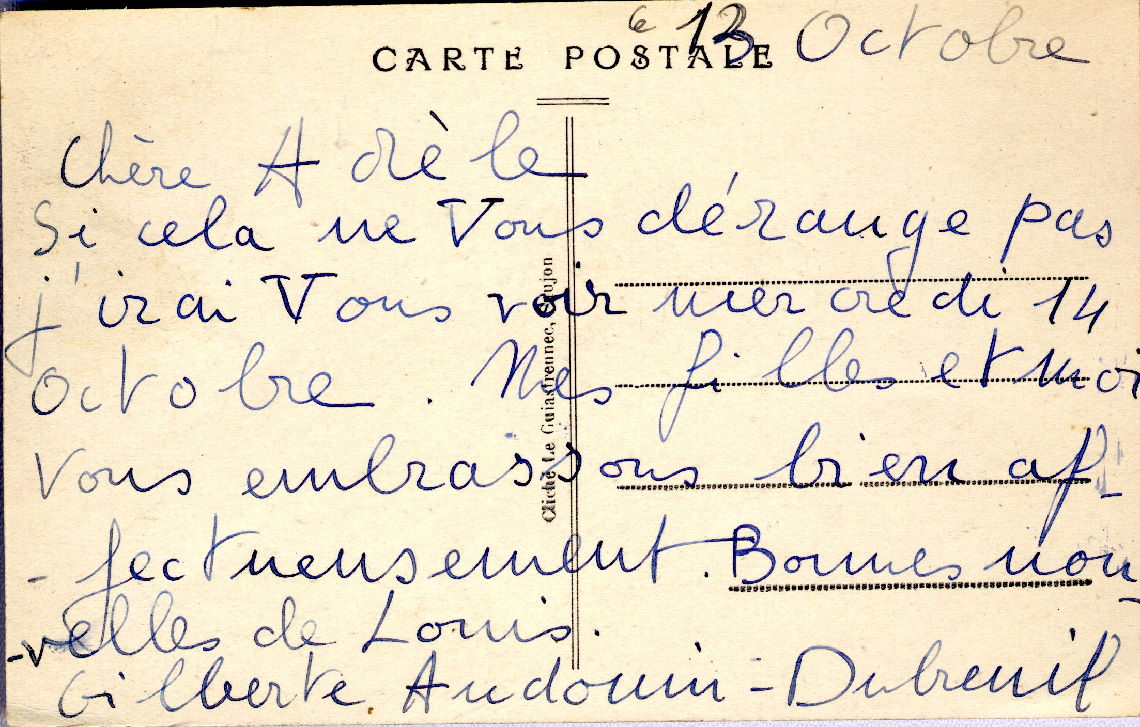 CARTE POSTALE
Le 13 Octobre
Chère Adèle
Si cela ne Vous dérange pas
j'irai Vous voir mercredi 14
Octobre. Mes filles et moi
Vous embrassons bien af-
- fectueusement. Bonnes nou-
-velles de Louis.
Gilberte Audouin-Dubreuil
Cliché Le Guiastrennec,